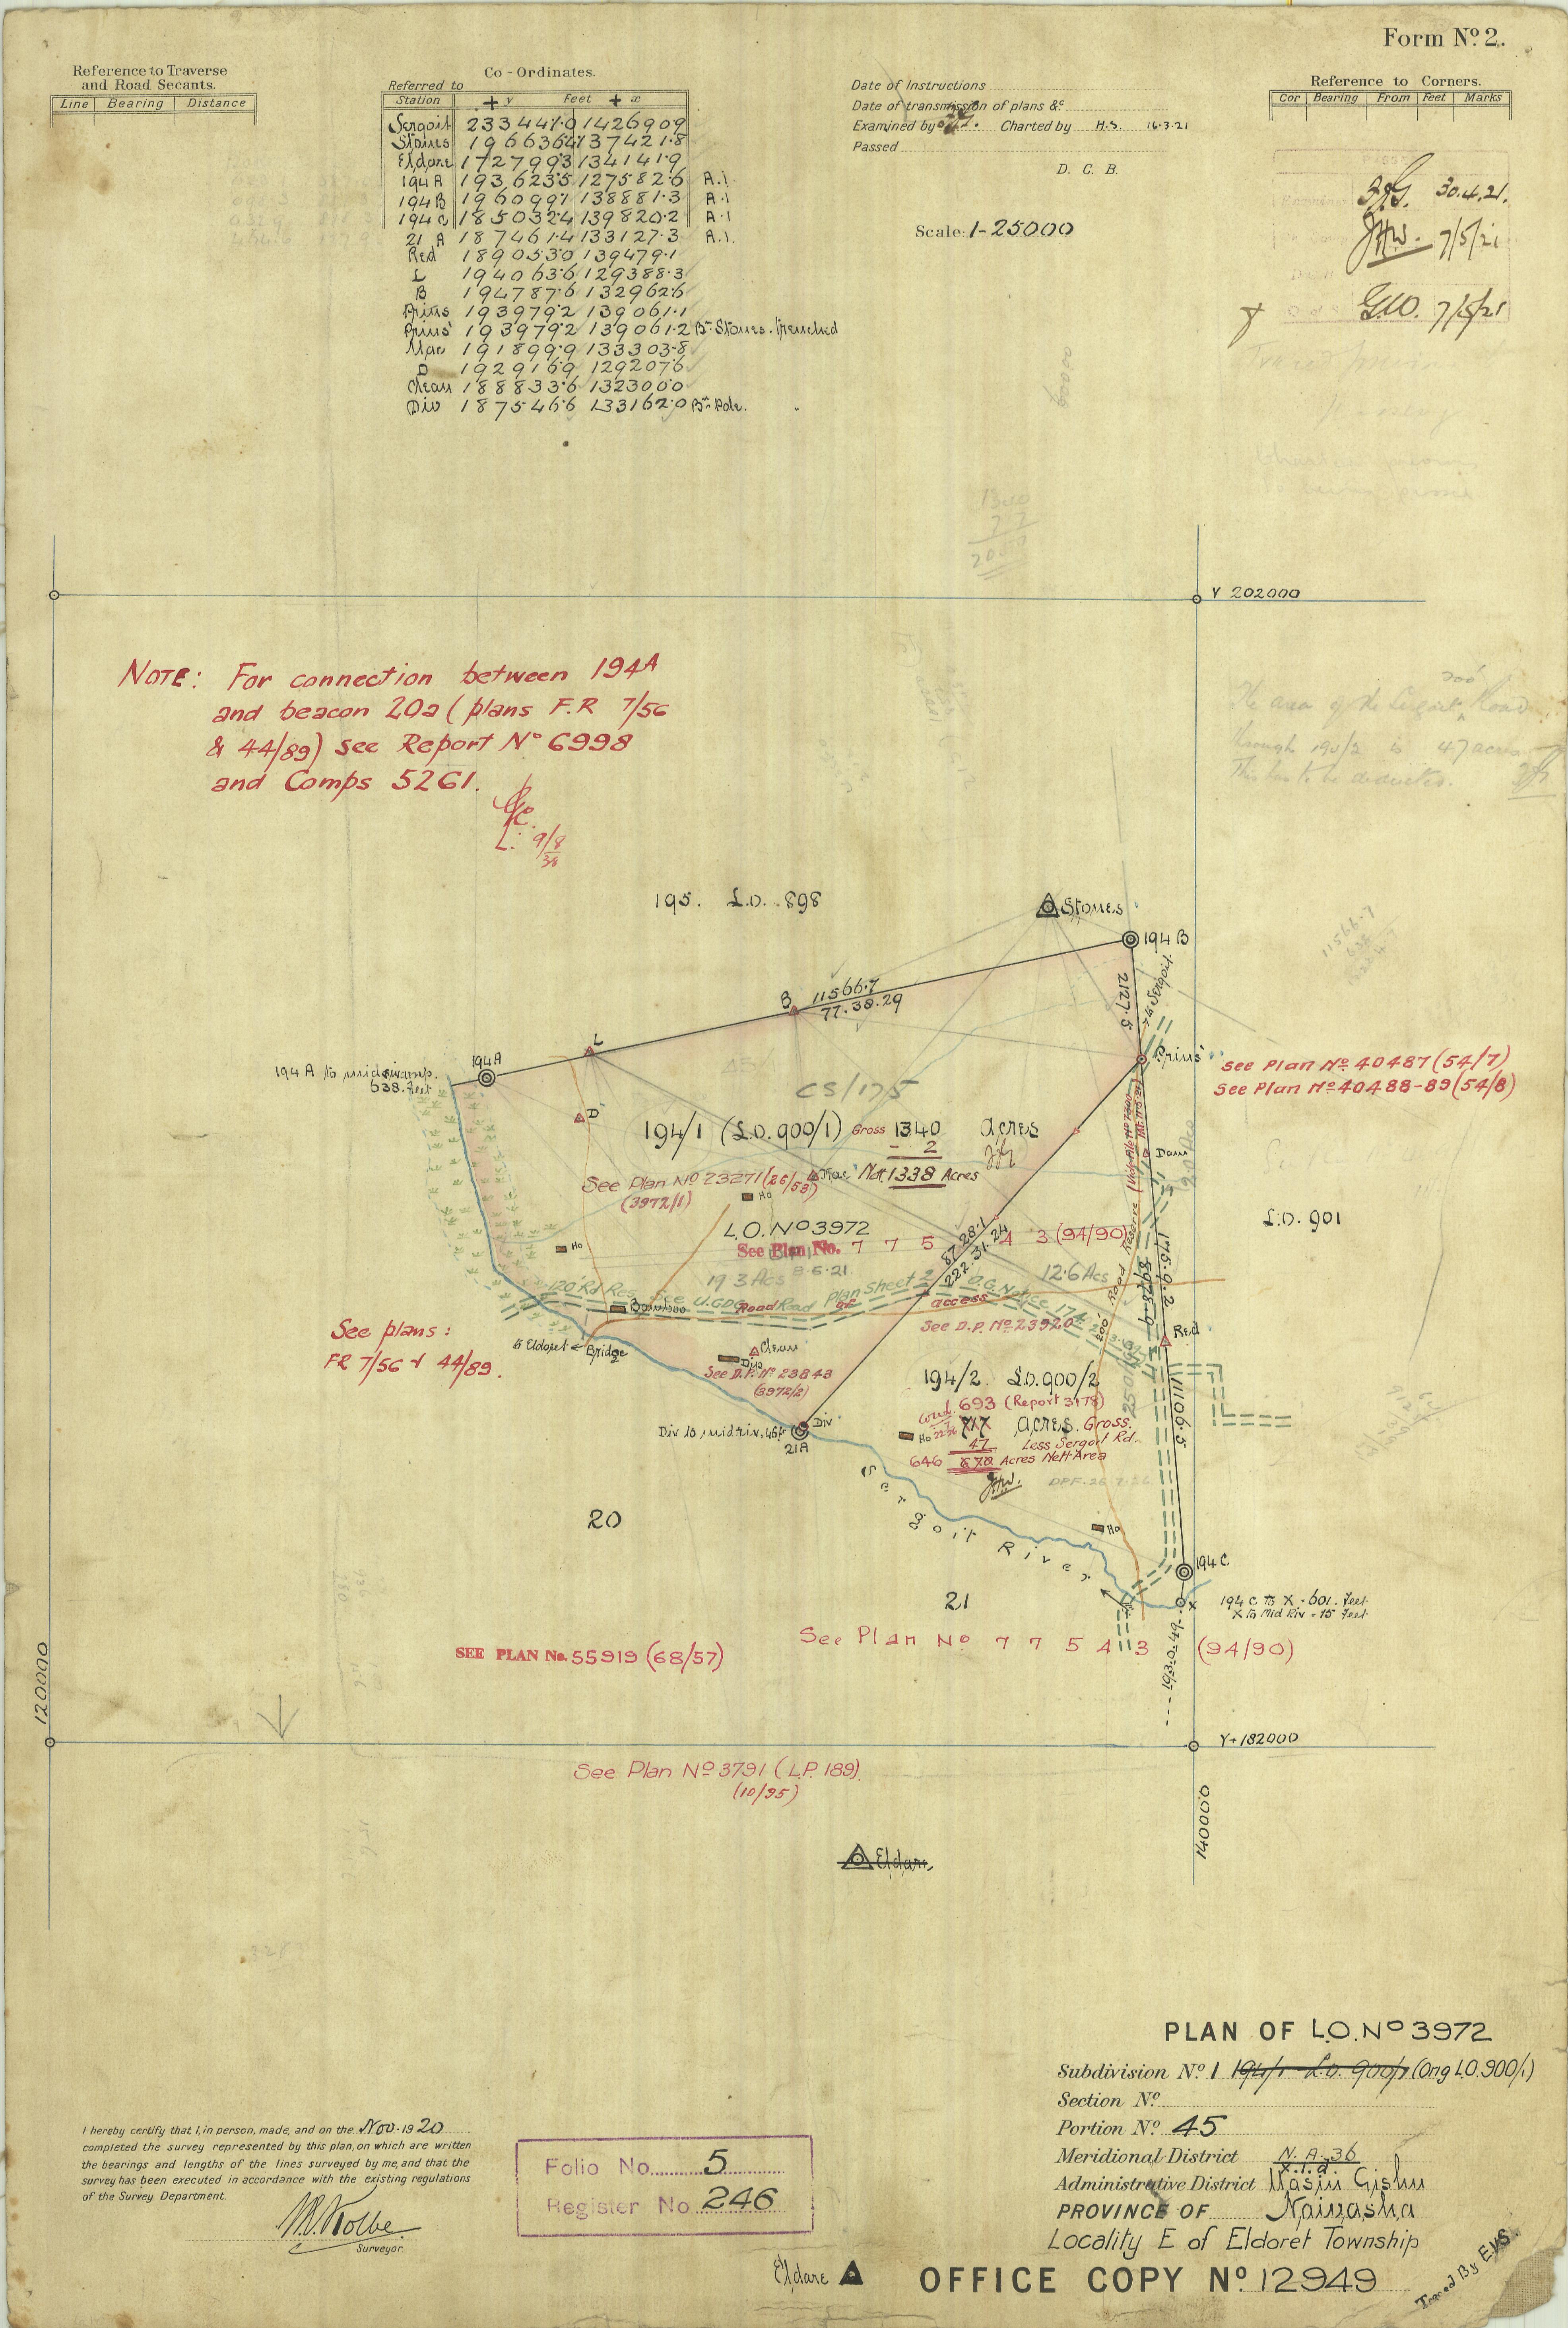 Form Nº 2.
Reference to Traverse
and Road Secants.
Line Bearing Distance
Co-Ordinates.
Referred to
Station + y Feet + x
Sergoit 233447.0 142690.9
Stones 196636.4 137421.8
Eldare 172799.3 134141.9
194A 193623.5 127582.6 A.I
194B 196099.7 138881.3 A.I
194C 185032.4 139820.2 A.I
21 A 187461.4 133127.3 A.I.
Red 189053.0 139479.1
L 194063.6 129388.3
B 194787.6 132962.6
Prins 193979.2 139061.1
Prins' 193979.2 139061.2 Bn Stones. trenched
Mac 191899.9 133303.8
D 192916.9 129207.6
Clean 188833.6 132300.0
Div 187546.6 133162.0 Bn Pole.
Date of Instructions
Date of transmission of plans &c
Examined by Charted by H.S. 16.3.21
Passed
D. C. B.
Scale: 1-25000
Reference to Corners.
Cor Bearing From Feet Marks
30.4.21.
JHW. 7/5/21
GW. 7/5/21
Y 202000
NOTE: For connection between 194A
and beacon 20a (plans F.R 7/56
& 44/89) see Report Nº 6998
and Comps 5261.
9/8
38
The area of the Sergoit 200' Road
through 194/2 is 47 acres
This has to be deducted.
195. L.O. 898
Stones
194 B
B 11566.7
77.38.29
2127.5
To Sergoit
L
194A
194 A to midswamp.
638. feet
Prins'
See Plan Nº 40487 (54/7)
See Plan Nº 40488-89 (54/8)
CS/175
D
194/1 (L.O. 900/1) Gross 1340 acres
- 2
Mac Nett 1338 Acres
See Plan Nº 23271 (26/53)
(3972/1)
Ho
Dam
L.O. Nº 3972
See Plan No. 7 7 5 4 3 (94/90)
L.O. 901
8.6.21
Ho
8728.1
222.31.24
19.3 Acs
12.6 Acs
120' Rd Res.
Road Road of access
See D.P. Nº 23920
200' Road Reserve
175.9.2
8978.9
Bamboo
Red
See plans:
FR 7/56 & 44/89.
to Eldoret ← Bridge
Clean
Dip
See D.P. Nº 23843
(3972/2)
194/2 L.O. 900/2
693 (Report 3178)
acres. Gross.
47 Less Sergoit Rd.
646 670 Acres Nett Area
JHW.
DPF. 26.7.26
11106.5
Div to midriv. 46 ft
Div
21A
Ho
Sergoit River
Ho
20
21
194 C
X
194 C to X = 601. feet
X to Mid Riv = 15 feet
See Plan Nº 7 7 5 4 3 (94/90)
SEE PLAN No. 55919 (68/57)
193.0.49
120000
Y+182000
140000
See Plan Nº 3791 (L.P. 189)
(10/95)
Eldare
PLAN OF L.O. Nº 3972
Subdivision Nº 1 194/1 L.O. 900/1 (Orig L.O. 900/1)
Section Nº
Portion Nº 45
Meridional District N.A-36
X.I.d.
Administrative District Uasin Gishu
PROVINCE OF Naivasha
Locality E of Eldoret Township
I hereby certify that I, in person, made, and on the Nov. 1920
completed the survey represented by this plan, on which are written
the bearings and lengths of the lines surveyed by me, and that the
survey has been executed in accordance with the existing regulations
of the Survey Department.
Kolbe
Surveyor.
Folio No. 5
Register No 246
Eldare
OFFICE COPY Nº 12949
Traced By EVS.